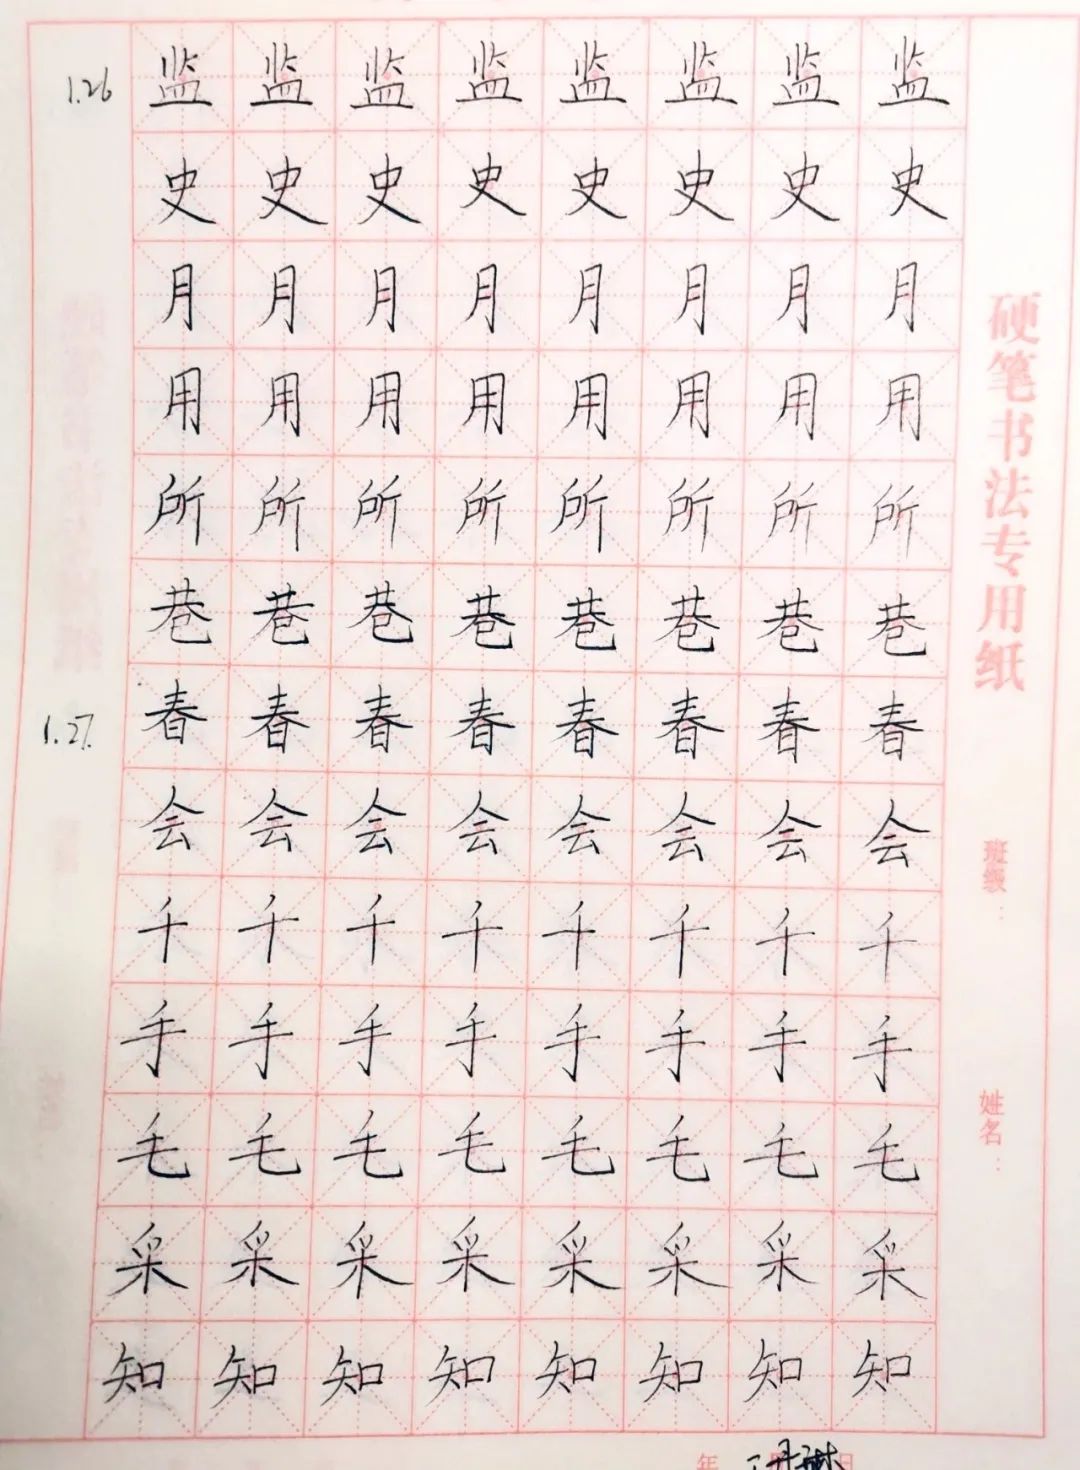 1.26 监 监 监 监 监 监 监 监
史 史 史 史 史 史 史 史
月 月 月 月 月 月 月 月
用 用 用 用 用 用 用 用
所 所 所 所 所 所 所 所
巷 巷 巷 巷 巷 巷 巷 巷
1.27. 春 春 春 春 春 春 春 春
会 会 会 会 会 会 会 会
千 千 千 千 千 千 千 千
手 手 手 手 手 手 手 手
毛 毛 毛 毛 毛 毛 毛 毛
采 采 采 采 采 采 采 采
知 知 知 知 知 知 知 知
硬笔书法专用纸
班级：
姓名：
年 日